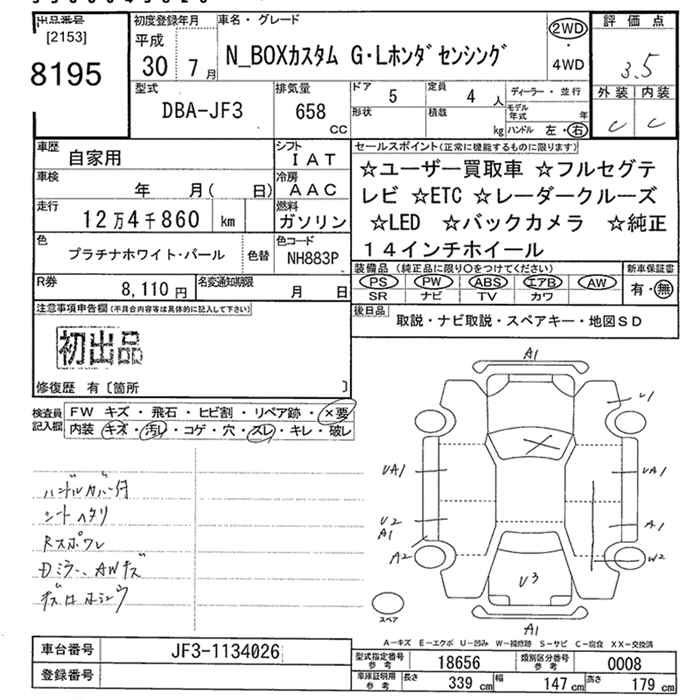 出品番号
[2153]
8195
初度登録年月
平成
30年 7月
車名・グレード
N_BOXカスタム G・Lホンダセンシング
2WD
・
4WD
評価点
3.5
外装 内装
C C
型式
DBA-JF3
排気量
658
CC
ドア
5
定員
4人
形状
積載
kg
ディーラー・並行
モデル年式 年
ハンドル 左・右
車歴
自家用
シフト
IAT
車検
年 月( 日)
冷房
AAC
走行
12万4千860 km
燃料
ガソリン
色
プラチナホワイト・パール
色替
色コード
NH883P
R券
8,110円
名変通知期限
月 日
セールスポイント(正常に機能するものに限ります)
☆ユーザー買取車 ☆フルセグテ
レビ ☆ETC ☆レーダークルーズ
☆LED ☆バックカメラ ☆純正
14インチホイール
装備品 (純正品に限り○をつけてください)
PS PW ABS エアB AW
SR ナビ TV カワ
新車保証書
有・無
後日品
取説・ナビ取説・スペアキー・地図SD
注意事項申告欄(不具合内容等は具体的に記入して下さい)
初出品
修復歴 有〔箇所 〕
検査員
記入欄
FW キズ・飛石・ヒビ割・リペア跡・×要
内装 キズ・汚レ・コゲ・穴・スレ・キレ・破レ
ハンドルカバー付
シートヘタリ
Rスポワレ
Dミラー、AWキズ
A1
U1
UA1
UA1
U2
A1
A1
A2
W2
U3
A1
スペア
A-キズ E-エクボ U-凹み W-補修跡 S-サビ C-腐食 XX-交換済
車台番号 JF3-1134026
登録番号
型式指定番号
参考
18656
類別区分番号
参考
0008
車庫証明用
参考
長さ 339cm 幅 147cm 高さ 179cm